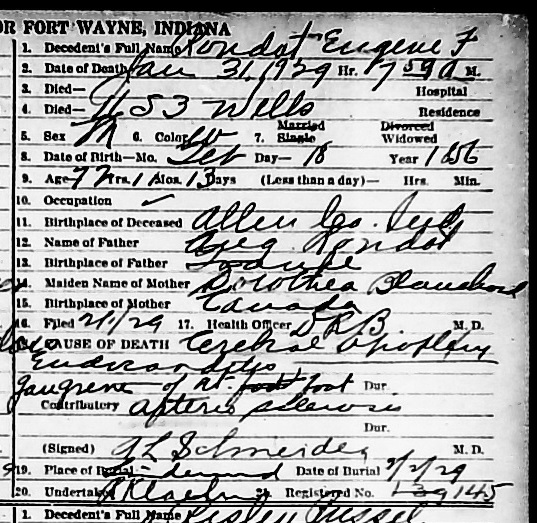 OR FORT WAYNE, INDIANA
1. Decedent's Full Name Rondot Eugene F
2. Date of Death Jan 31, 1929 Hr. 7 59 A M.
3. Died— Hospital
4. Died— 1153 Wells Residence
5. Sex M 6. Color W 7. Married Single Divorced Widowed
8. Date of Birth—Mo. Feb Day— 18 Year 1856
9. Age 72 Yrs. 11 Mos. 13 Days (Less than a day)— Hrs. Min.
10. Occupation ✓
11. Birthplace of Deceased Allen Co. Ind
12. Name of Father Aug Rondot
13. Birthplace of Father France
14. Maiden Name of Mother Dorothea Blanchard
15. Birthplace of Mother Canada
16. Filed 2/1/29 17. Health Officer DRB M. D.
CAUSE OF DEATH Cerebral Apoplexy
Endocarditis
Gangrene of Rt. foot foot Dur.
Contributory Arterio sclerosis
Dur.
(Signed) Schneider M. D.
19. Place of Burial Date of Burial 2/2/29
20. Undertaker Klaehn 21. Registered No. 145
1. Decedent's Full Name Russel